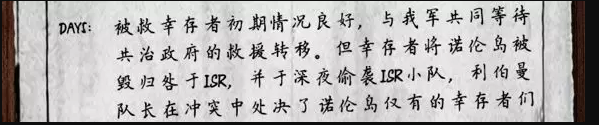 DAY1: 被救幸存者初期情况良好，与我军共同等待
共治政府的救援转移。但幸存者将诺伦岛被
毁归咎于ISR，并于深夜偷袭ISR小队，利伯曼
队长在冲突中处决了诺伦岛仅有的幸存者们